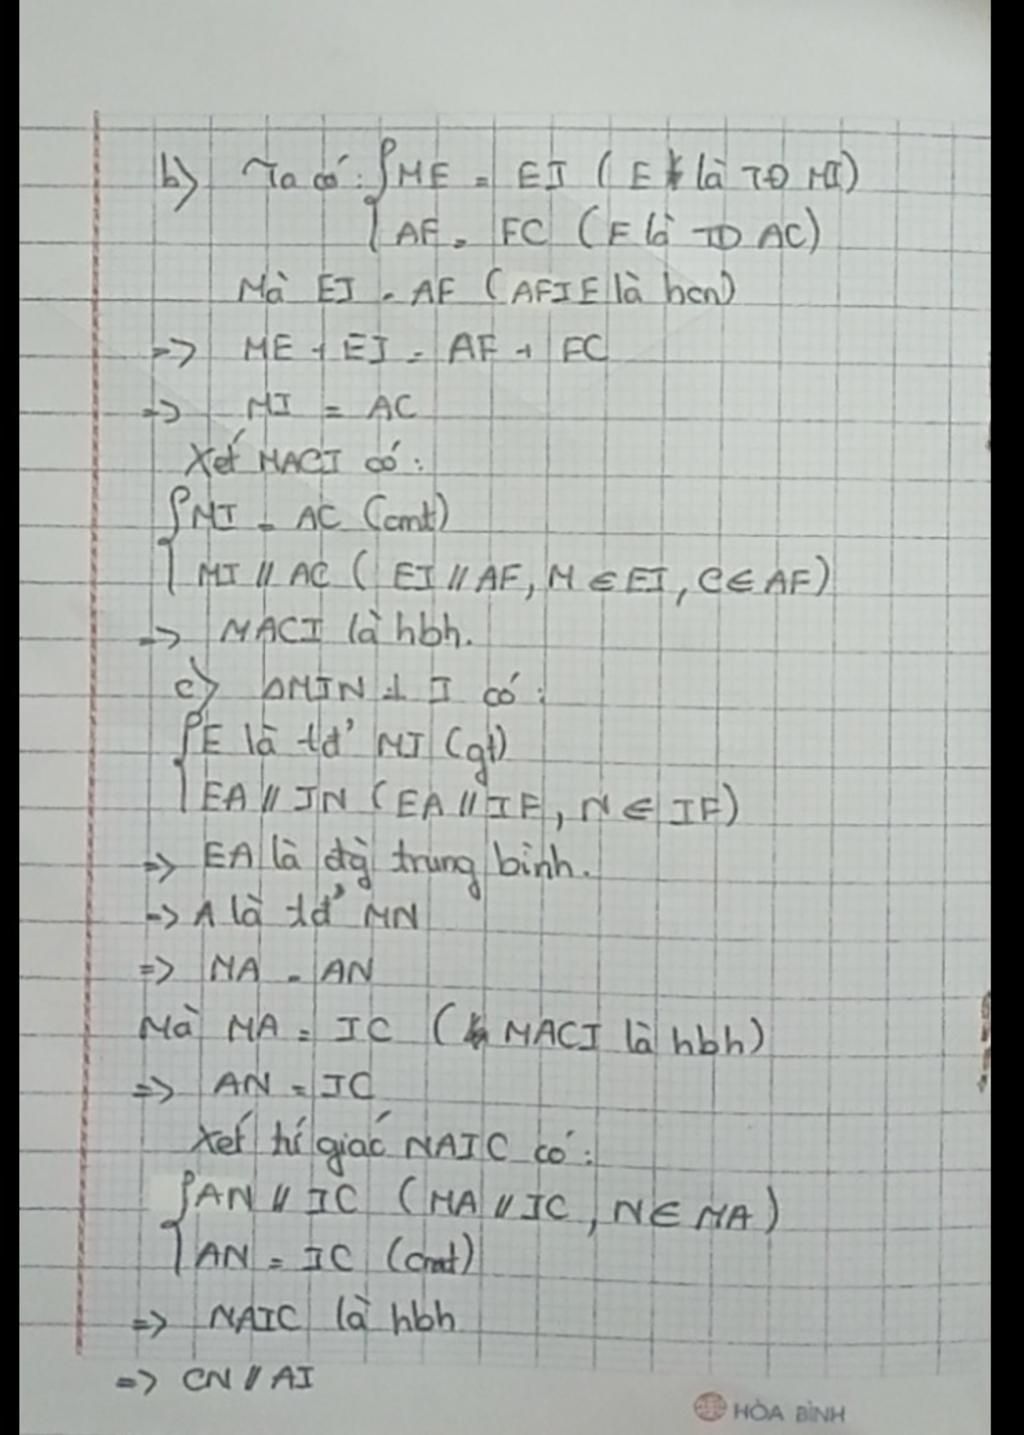 b) Ta có: { ME = EI ( E là TĐ MI)
{ AF = FC ( F là TĐ AC)
Mà EI = AF ( AFIE là hcn)
=> ME + EI = AF + FC
=> MI = AC
Xét MACI có:
{ MI = AC (cmt)
{ MI // AC ( EI // AF, M ∈ EI, C ∈ AF)
=> MACI là hbh.
c) ΔMIN ⊥ I có:
{ E là tđ' MI (gt)
{ EA // IN ( EA // IF, N ∈ IF)
=> EA là đg trung bình.
=> A là tđ' MN
=> MA = AN
Mà MA = IC ( MACI là hbh)
=> AN = IC
Xét tứ giác NAIC có:
{ AN // IC ( MA // IC, N ∈ MA)
{ AN = IC (cmt)
=> NAIC là hbh
=> CN // AI
HÒA BÌNH